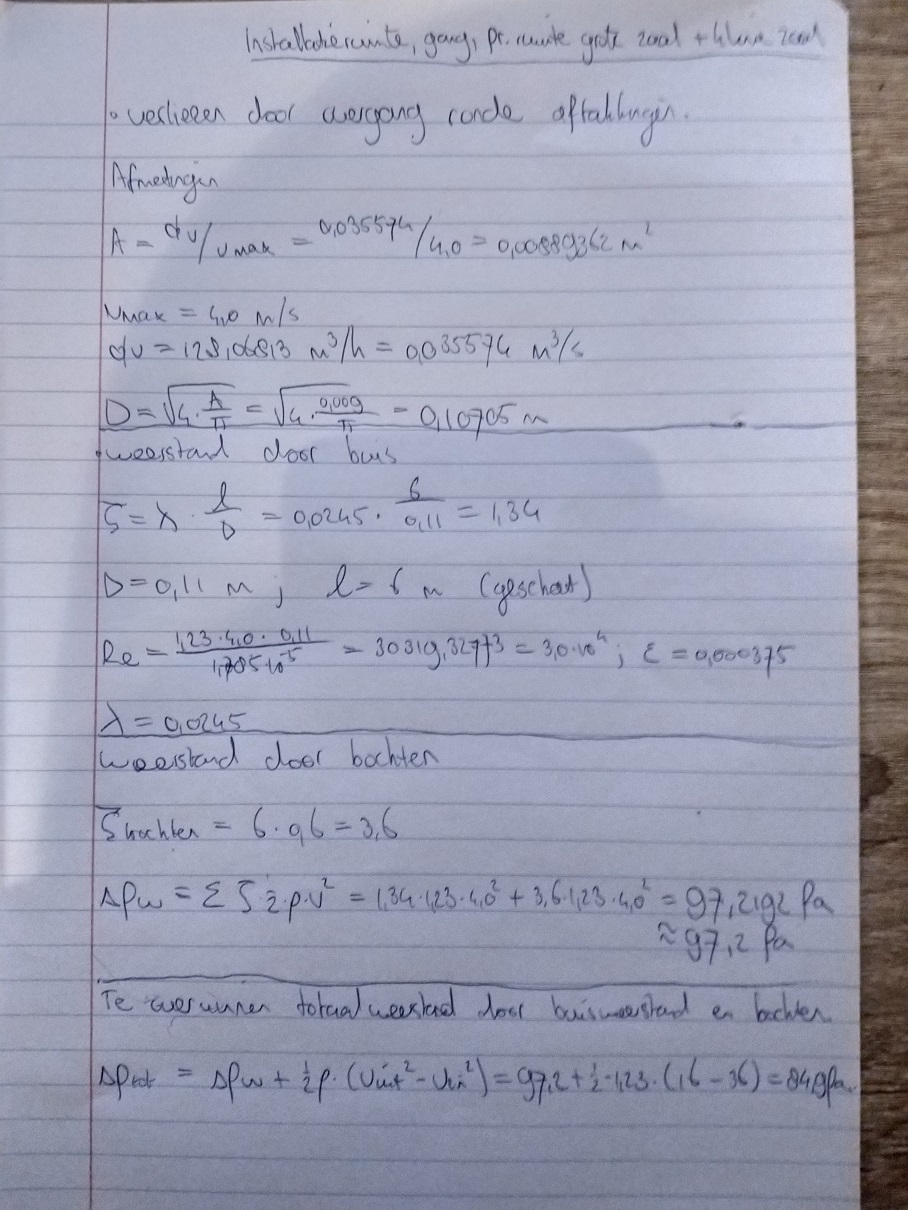 Installatieruimte, gang, pr. ruimte grote zaal + kleine zaal
• verliezen door overgang ronde aftakkingen.
Afmetingen
A = ϕv/vmax = 0,035574/4,0 = 0,00889362 m²
Vmax = 4,0 m/s
ϕv = 128,06813 m³/h = 0,035574 m³/s
D = √(4·A/π) = √(4·0,009/π) = 0,10705 m
weerstand door buis
ζ = λ · l/D = 0,0245 · 6/0,11 = 1,34
D = 0,11 m ; l = 6 m (geschat)
Re = 1,23·4,0·0,11/1,705·10⁻⁵ = 30319,32773 = 3,0·10⁴ ; ε = 0,000375
λ = 0,0245
Weerstand door bochten
ζbochten = 6·0,6 = 3,6
Δpw = Σ ζ ½·ρ·v² = 1,34·1,23·4,0² + 3,6·1,23·4,0² = 97,2192 Pa
≈ 97,2 Pa
Te overwinnen totaalweerstand door buisweerstand en bochten
Δptot = Δpw + ½ρ·(Vuit² - Vin²) = 97,2 + ½·1,23·(16 - 36) = 84,9 Pa.